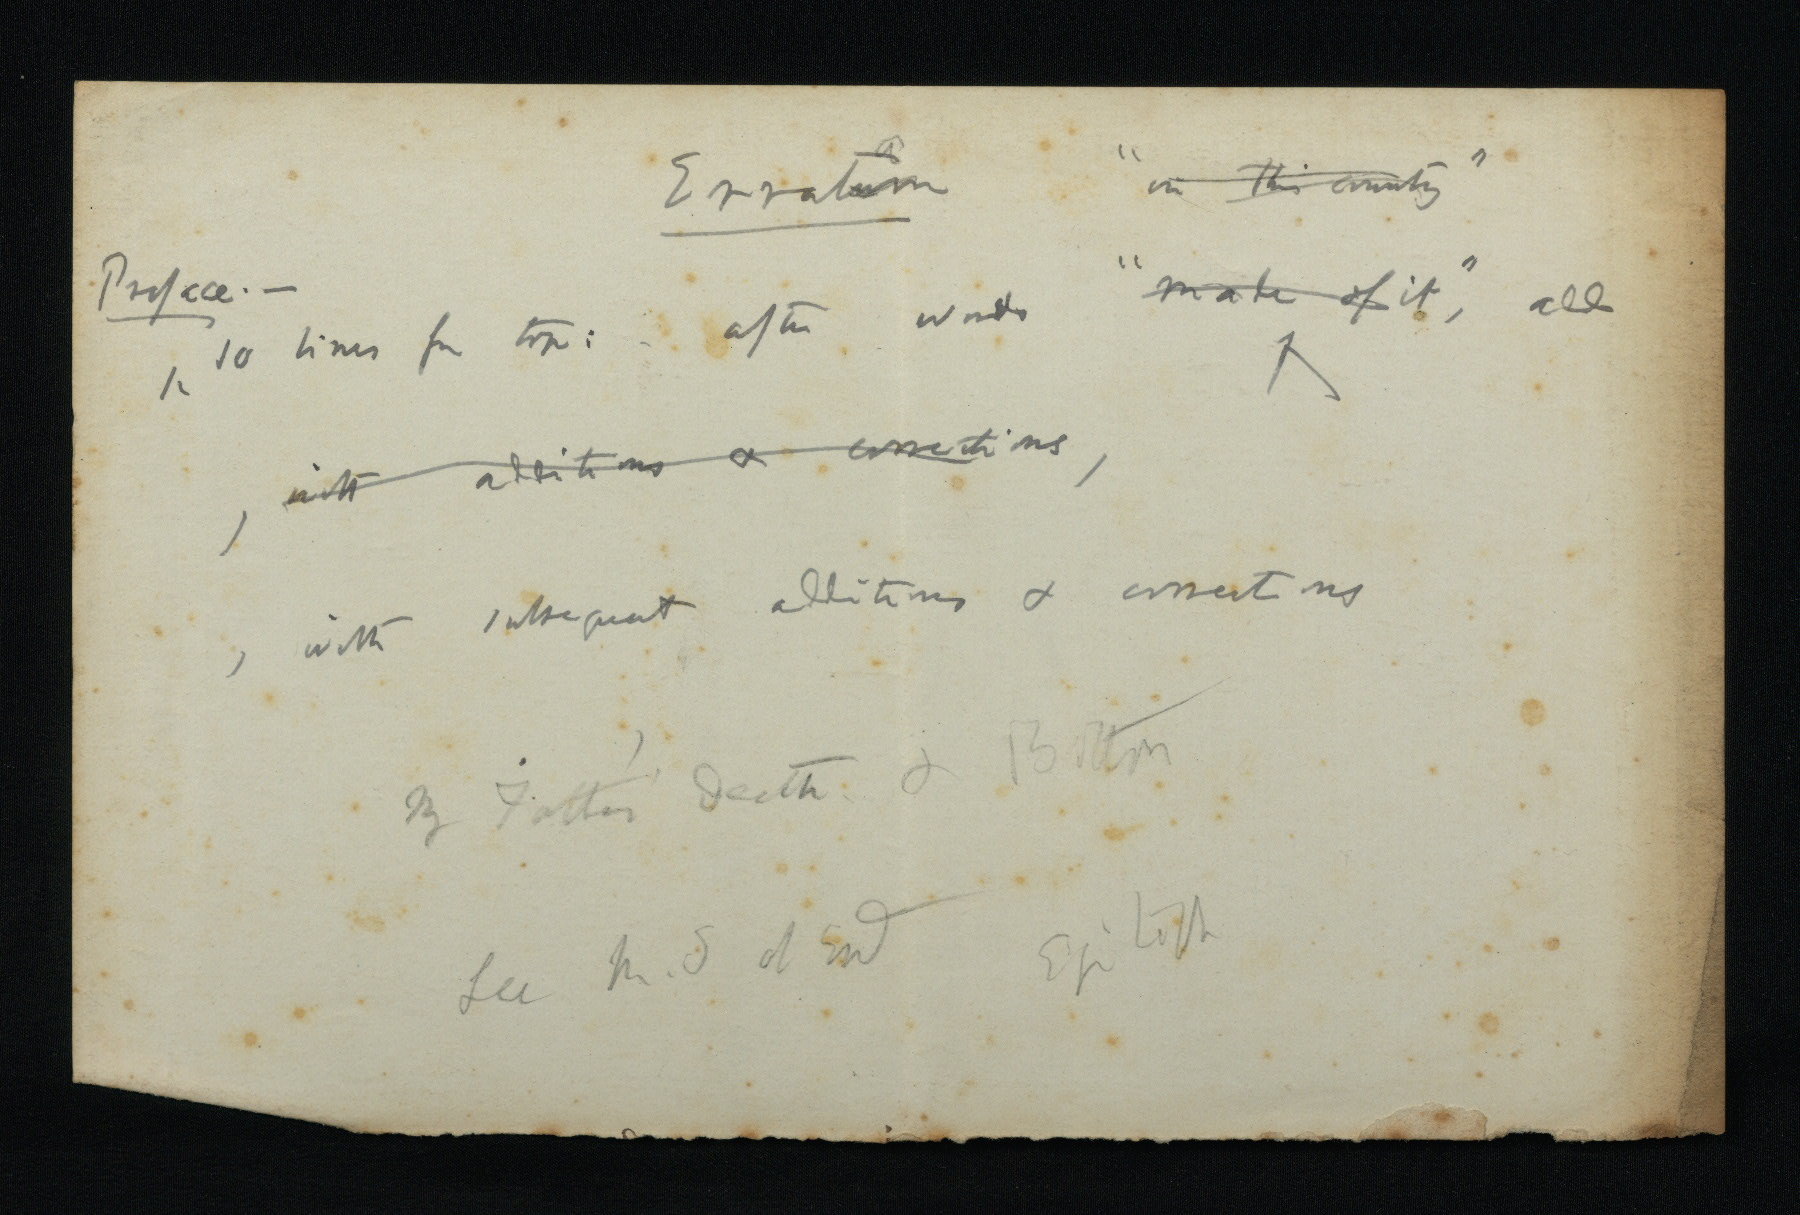 Erratum "in this country"
Preface.—
10 lines fr top: after words "made of it", add
, with additions & corrections,
, with subsequent additions & corrections
My Father's Death. &
See M.S at End Epitaph